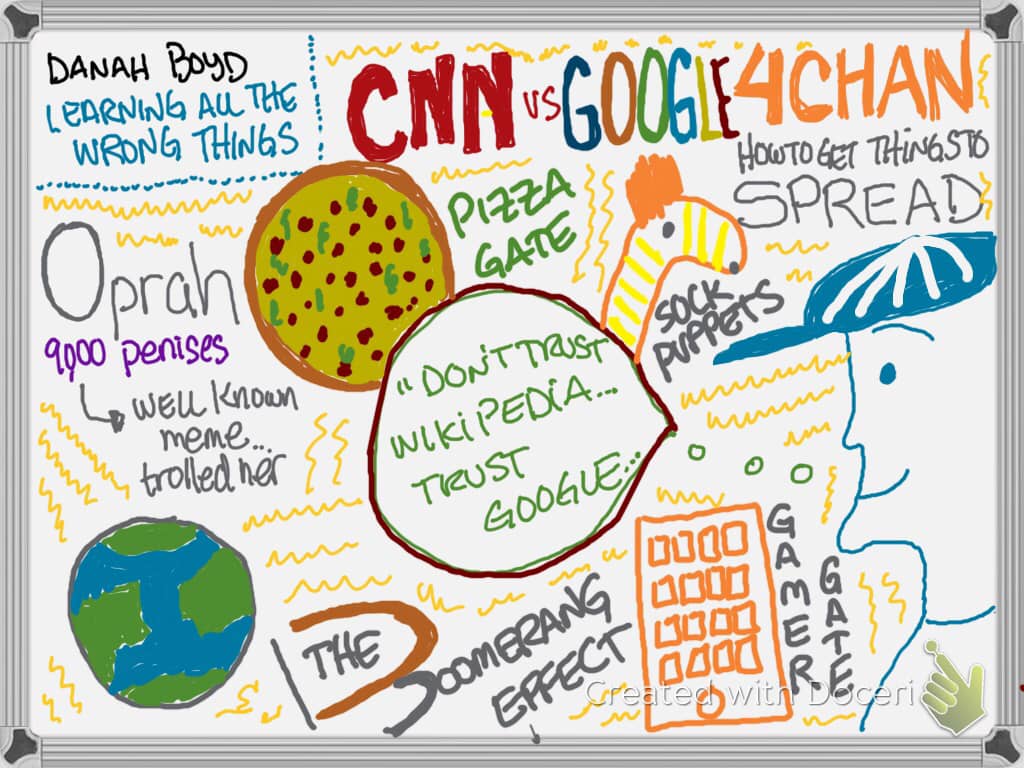 DANAH BOYD
LEARNING ALL THE
WRONG THINGS
CNN VS GOOGLE 4CHAN
HOW TO GET THINGS TO
SPREAD
PIZZA
GATE
Oprah
9,000 penises
WELL KNOWN
meme...
trolled her
SOCK
PUPPETS
"DON'T TRUST
WIKIPEDIA...
TRUST
GOOGLE...
GAMER
GATE
THE BOOMERANG
EFFECT
Created with Doceri